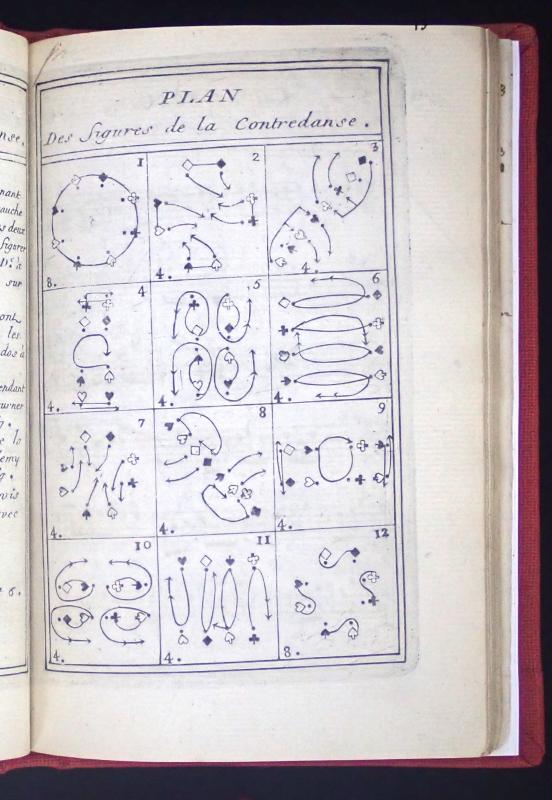 PLAN
Des figures de la Contredanse.
1
2
3
8.
4.
4.
4
5
6
4.
4.
4.
7
8
9
4.
4.
4.
10
11
12
4.
4.
8.
nse.
nant
auche
s deux
figurer
D.e à
sur
ont
les
dos à
endant
urner
e la
emy
vis
vec
6.